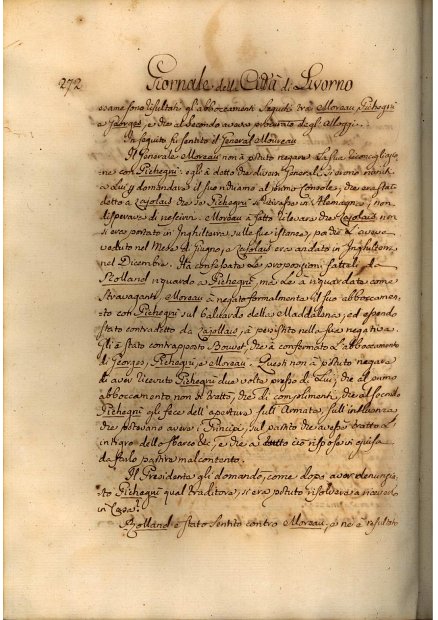 272 Giornale della Città di Livorno
esame sono risultati gli abboccamenti seguiti tra Moreau, Pichegri
e Georges, e che al secondo aveva procurato degli Alloggi.
In seguito fu sentito il General Moreau
Il Generale Moreau non à potuto negare la sua riconciliazio-
ne con Pichegri: egli à detto che diversi Generali si erono riuniti
a Lui p domandare il suo richiamo al primo Console, che era stato
detto a Lajolais che se Pichegri si ritirasse in Alemagna, non
disperava di riescirvi. Moreau à fatto rilevare che Lajolais non
si era portato in Inghilterra sulle sue istanze, poichè Lo aveva
veduto nel Mese di Giugno, e Lajolais era andato in Inghilterra
nel Decembre. Hà confessato Le proposizioni fattele da
Rolland riguardo a Pichegri, ma Le à riguardate come
stravaganti. Moreau à negato formalmente il suo abboccamen-
to con Pichegri sul baluardo della Maddalena; ed essendo
stato contradetto da Lajollais, à persistito nella sua negativa.
Gli à stato contrapposto Bouvet, che à confermato L'abboccamento
di Georges, Pichegri, e Moreau. Questi non à potuto negare
di aver ricevuto Pichegri due volte presso di Lui; che al primo
abboccamento non si trattò, che di complimenti, che al secondo
Pichegri gli fece dell'apertura sull'Armata, sull'influenza
che potevano avere i Principi, sul partito che avesse tratto L'
intrigo dello sbarco &c, e che a tutto ciò rispose in guisa
da farlo partire malcontento.
Il Presidente gli domandò, come dopo aver denunzia-
to Pichegri qual traditore, si era potuto risolvere a riceverlo
in Casa?
Rolland è stato sentito contro Moreau, e ne è resultato